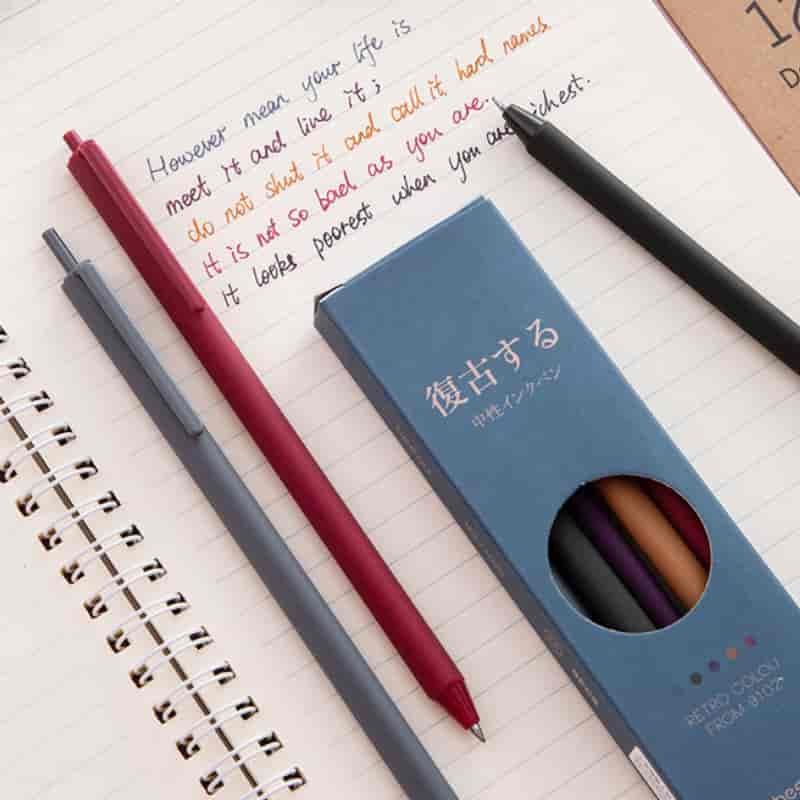 However mean your life is
meet it and live it;
do not shut it and call it hard names.
It is not so bad as you are.
It looks poorest when you are richest.
復古する
中性インクペン
RETRO COLOU
FROM 9102
12